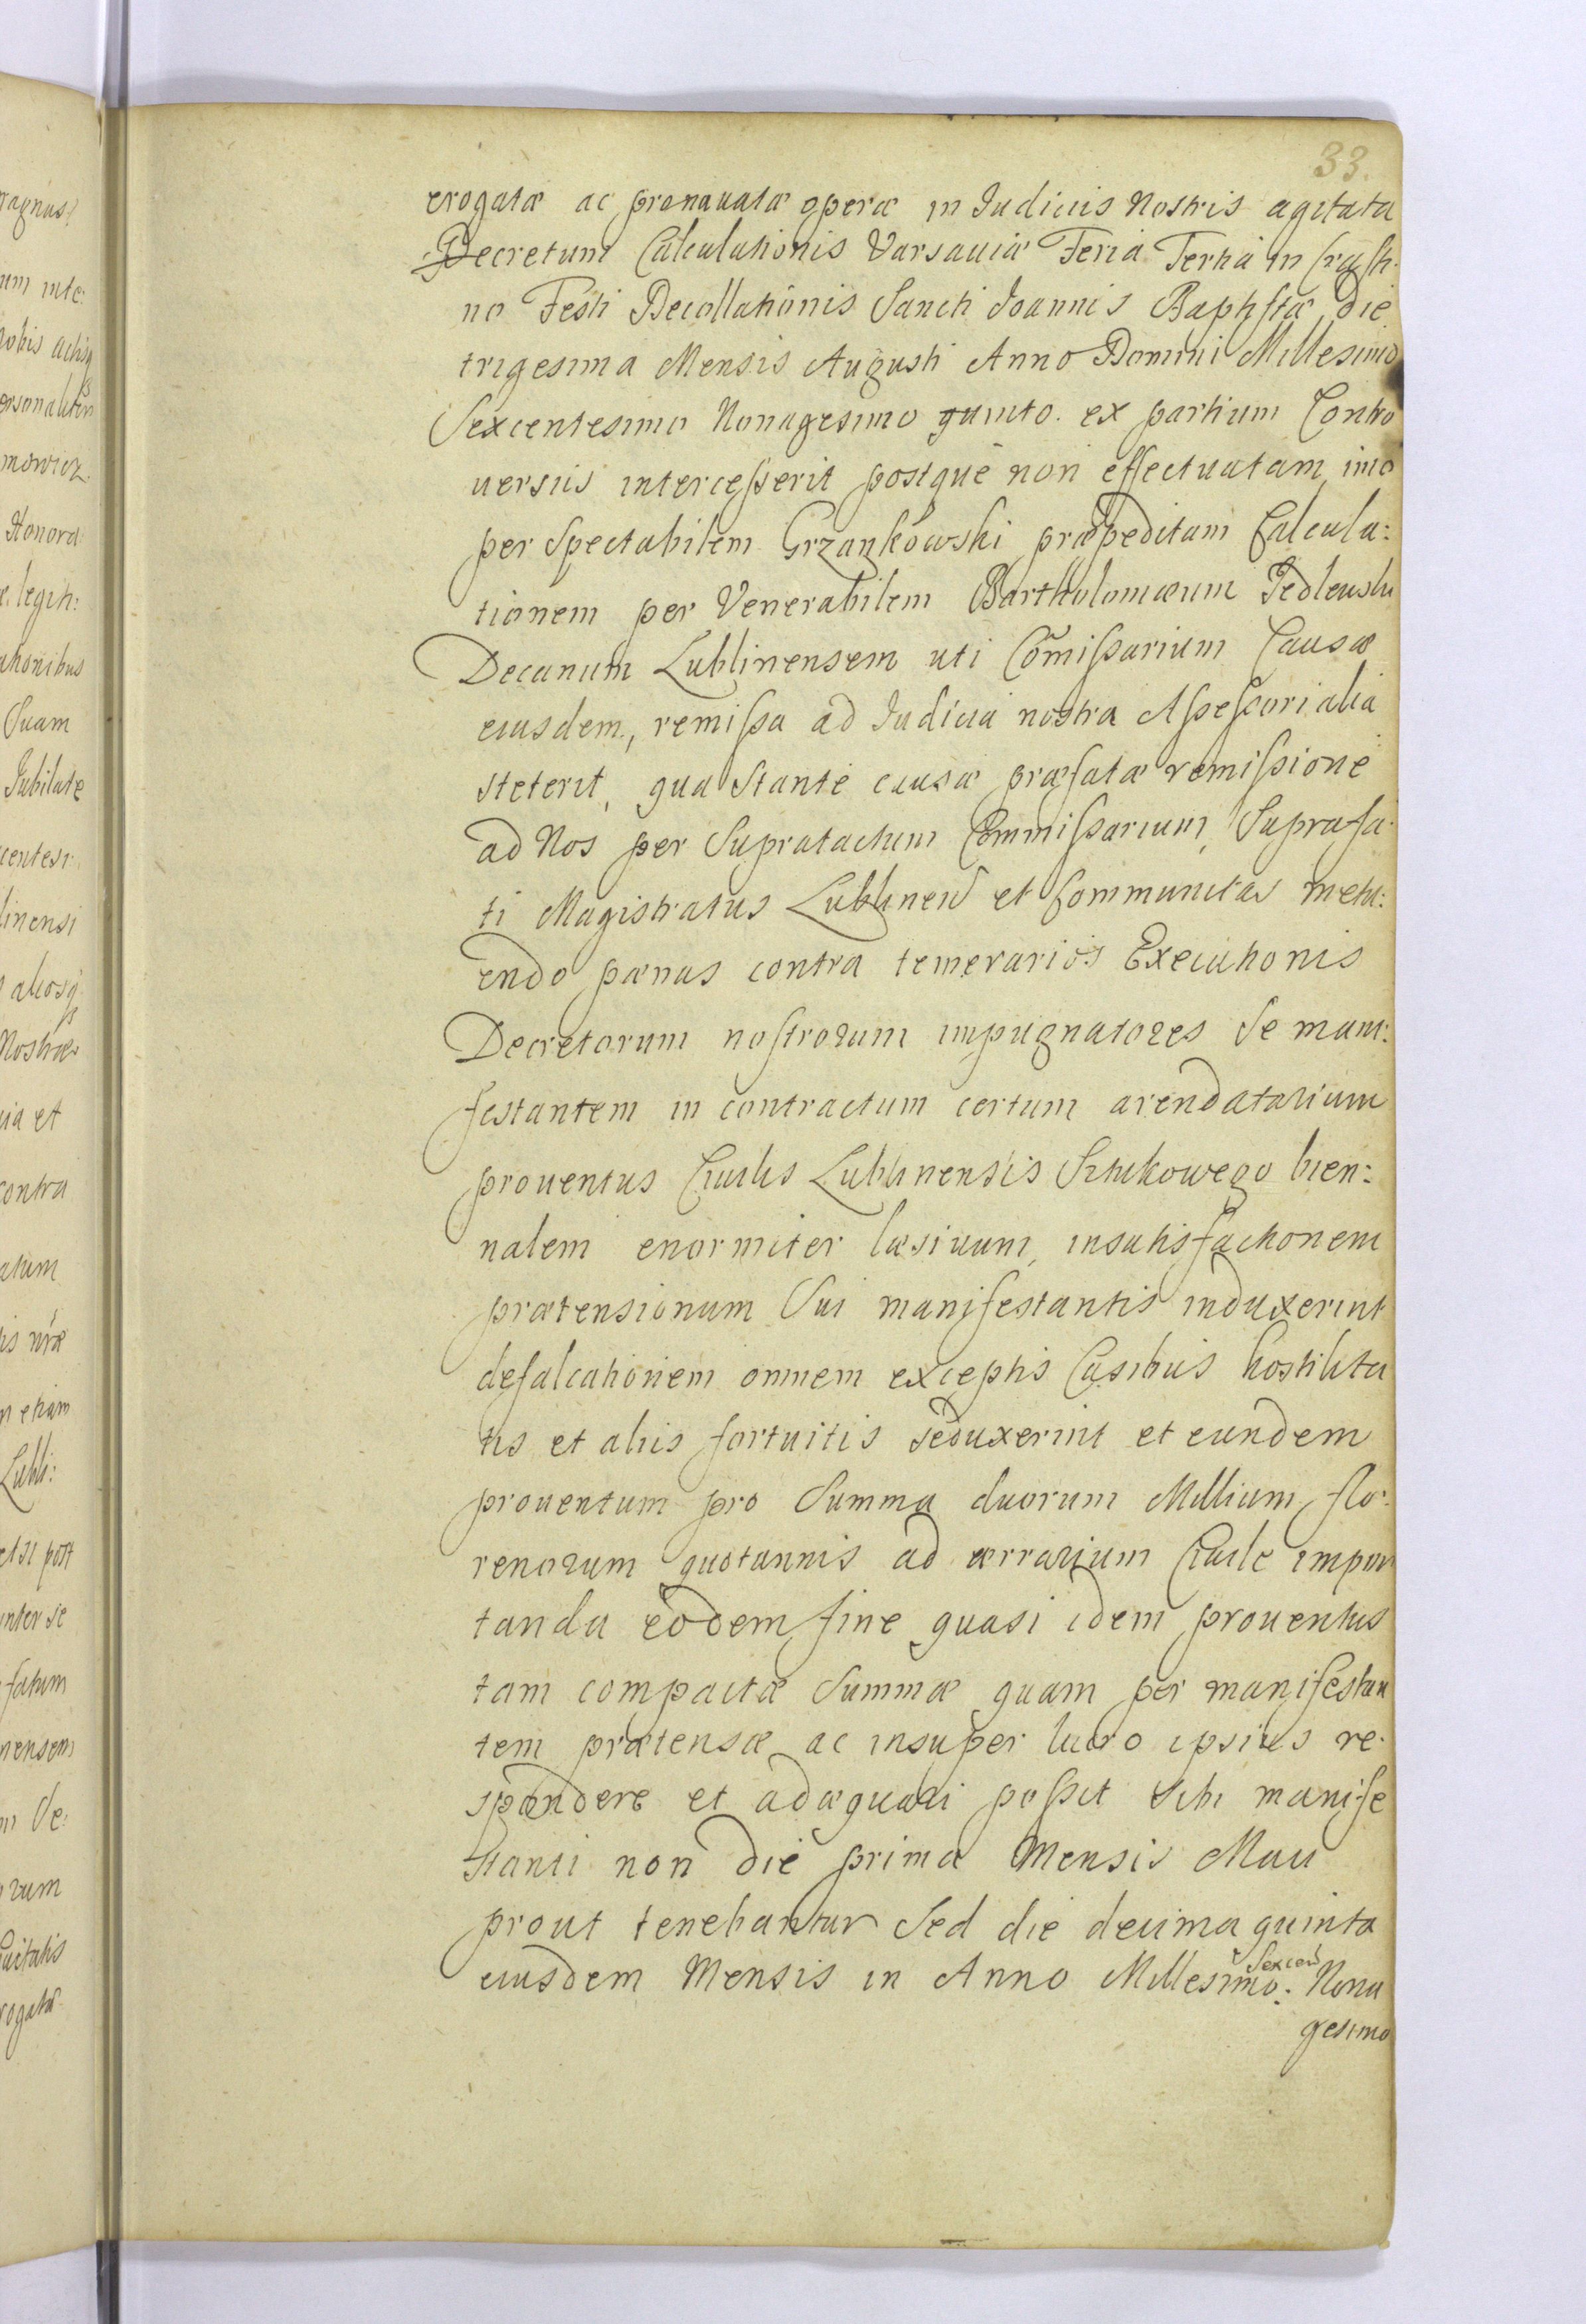 33.
erogatæ ac pronavatæ operæ in Judiciis Nostris agitata
Decretum Calculationis Varsaviæ Feria Tertia in Crasti-
no Festi Decollationis Sancti Joannis Baptistæ die
trigesima Mensis Augusti Anno Domini Millesimo
Sexcentesimo Nonagesimo quinto. ex partium Contro
uersiis intercesserit postque non effectuatam, imo
per Spectabilem Grzankowski præpeditam Calcula:
tionem per Venerabilem Bartholomæum Jedlenski
Decanum Lublinensem uti Cõmissarium Causæ
eiusdem, remissa ad Judicia nostra Assessorialia
steterit, qua stante causæ præfatæ remissione
ad Nos per Supratactum Commissarium, Suprafa-
ti Magistratus Lublinen et Communitas metu:
endo pænas contra temerarios Executionis
Decretorum nostrorum impugnatores se mani:
festantem in contractum certum arendatarium
prouentus Ciuilis Lublinensis Sztukowego bien:
nalem enormiter læsiuum, insatisfactionem
prætensionum Sui manifestantis induxerint
defalcationem omnem exceptis Casibus hostilita
tis et aliis fortuitis seduxerint et eundem
prouentum pro Summa duorum Millium flo-
renorum quotannis ad ærrarium Ciuile impor
tanda eodem fine quasi idem prouentus
tam compactæ Summæ quam per manifestan
tem prætensæ ac insuper lucro ipsius re-
spondere et adæquari possit Sibi manife
stanti non die prima Mensis Maii
prout tenebantur Sed die decima quinta
eiusdem Mensis in Anno Millesimo Sexcen: Nona
gesimo
ragnus
um inte:
nobis actisq
ersonaliter
mowicz
Honora
legiti:
ationibus
Suam
Jubilate
centesi
linensi
aliosq
Nostræ
ia et
contra
atum
is nræ
n etiam
Lubli:
etsi post
inter se
fatum
nensem
m Se:
rum
uitatis
rogatæ